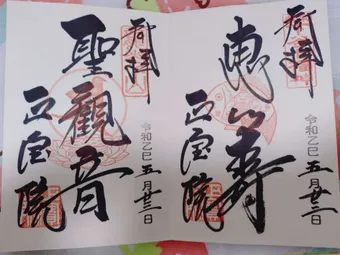 奉拝
恵比寿
西宝院
令和乙巳 五月廿三日
奉拝
聖観音
西宝院
令和乙巳 五月廿三日